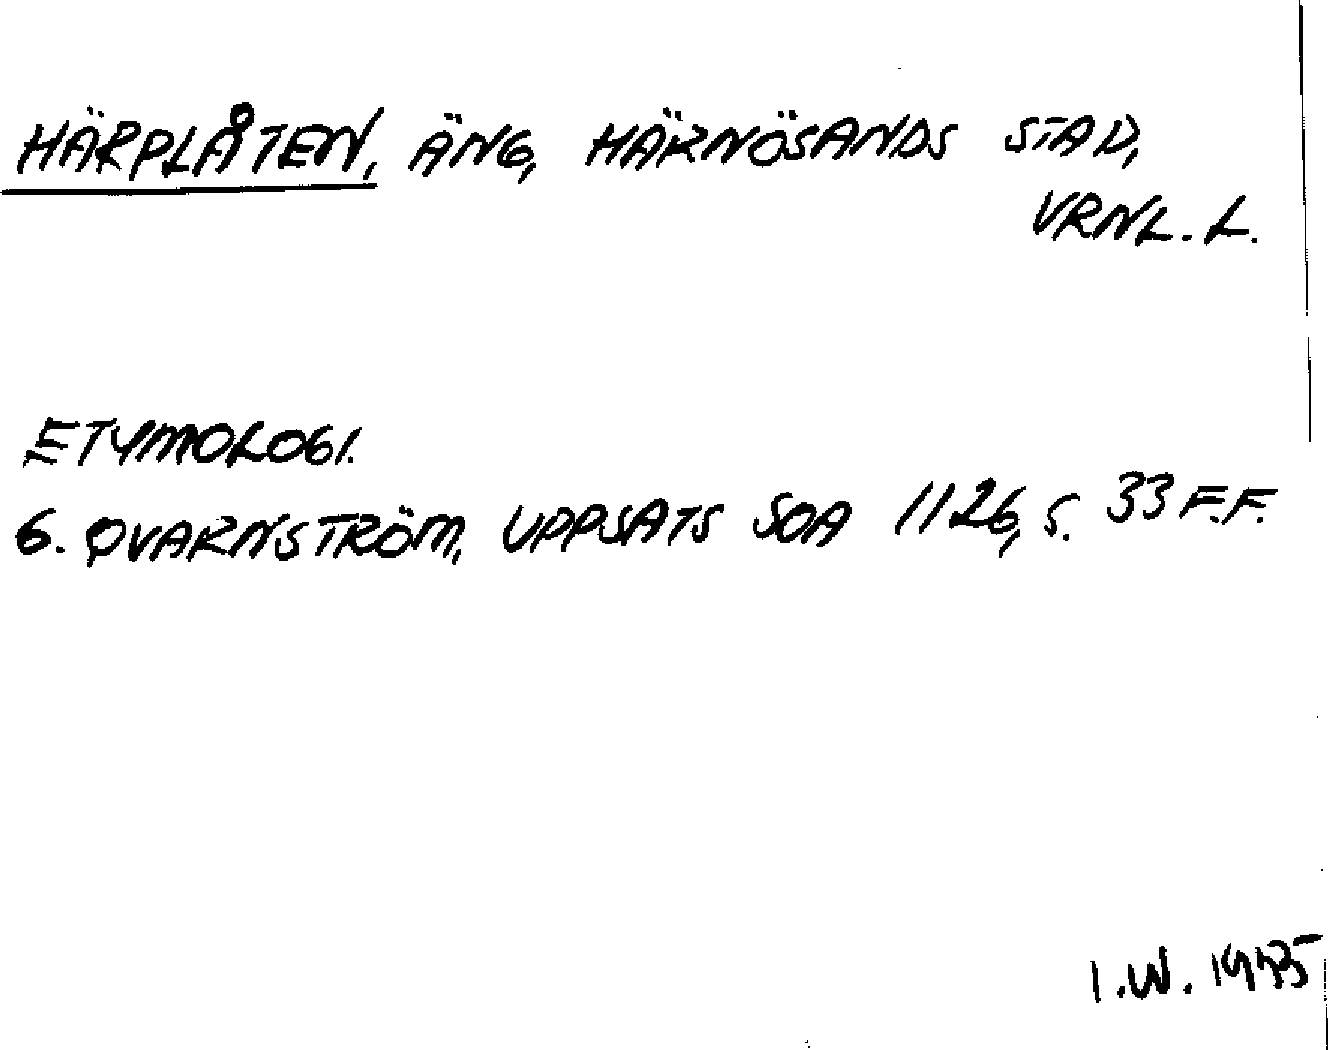 HÄRPLÅTEN, ÄNG, HÄRNÖSANDS STAD,
VRNL. L.
ETYMOLOGI.
G. QVARNSTRÖM, UPPSATS SOA 1126, S. 33 F.F.
I.W.